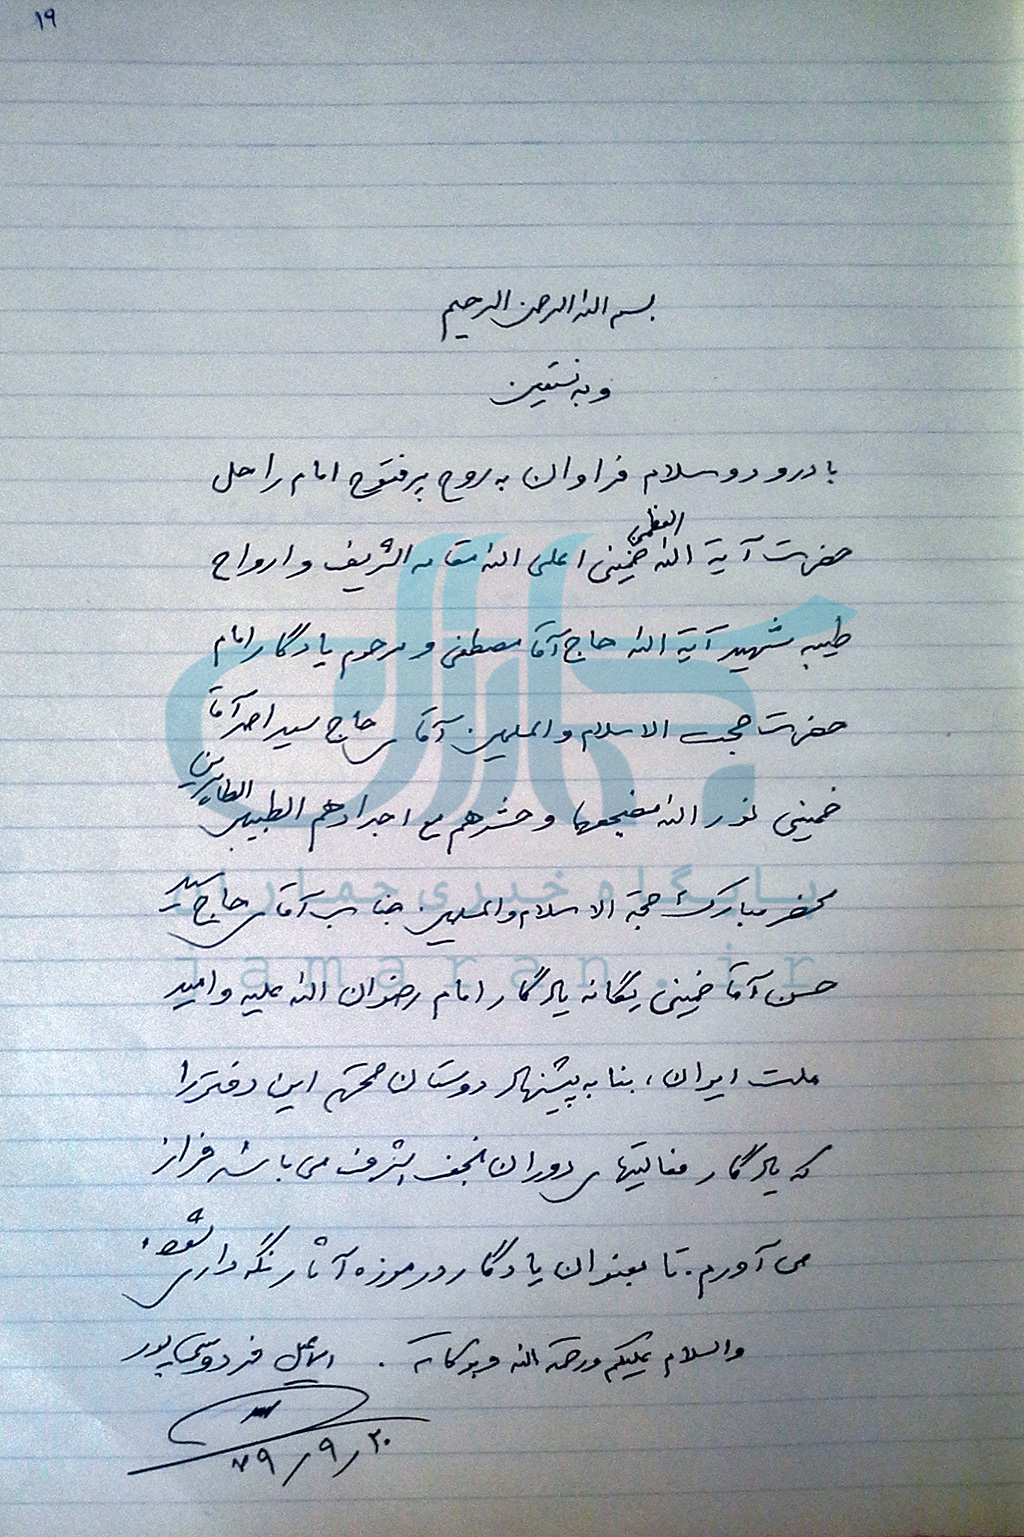 ۱۹
بسم الله الرحمن الرحیم
و به نستعین
با درود و سلام فراوان به روح پرفتوح امام راحل
حضرت آیة الله العظمی خمینی اعلی الله مقامه الشریف و ارواح
طیبه شهید آیة الله حاج آقا مصطفی و مرحوم یادگار امام
حضرت حجت الاسلام والمسلمین آقای حاج سید احمد آقا
خمینی نور الله مضجعهما و حشرهم مع اجدادهم الطیبین الطاهرین
محضر مبارک حجة الاسلام والمسلمین جناب آقای حاج سید
حسن آقا خمینی یگانه یادگار امام رضوان الله علیه و امید
ملت ایران، بنا به پیشنهاد دوستان محترم این دفتر را
که یادگار فعالیتهای دوران نجف اشرف می باشد فراز
می آورم. تا بعنوان یادگار در موزه آثار نگه داری شود.
والسلام علیکم و رحمة الله و برکاته . اسماعیل فردوسی پور
۷۹/۹/۲۰
جماران
پایگاه خبری جماران
jamaran.ir